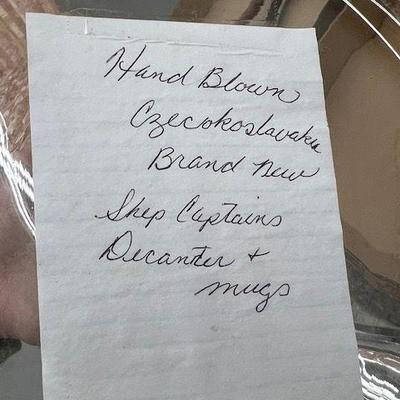 Hand Blown
Czecokoslavakia
Brand New
Ship Captains
Decanter +
mugs